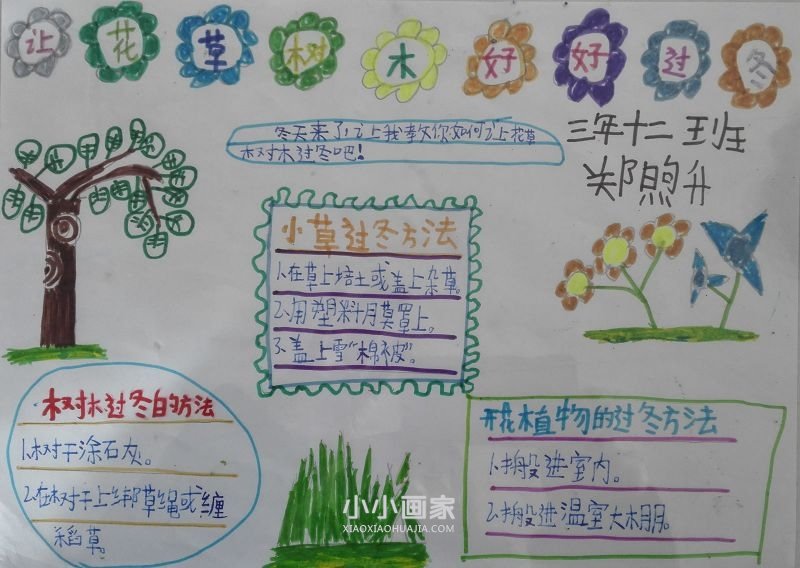 让花草树木好好过冬
冬天来了,让我教你如何让花草
树木过冬吧!
三年十二班
郑煦升
小草过冬方法
1.在草上培土或盖上杂草。
2.用塑料膜罩上。
3.盖上雪“棉被”。
树木过冬的方法
1.树干涂石灰。
2.在树干上绑草绳或缠
稻草。
开花植物的过冬方法
1.搬进室内。
2.搬进温室大棚。
小小画家
XIAOXIAOHUAJIA.COM